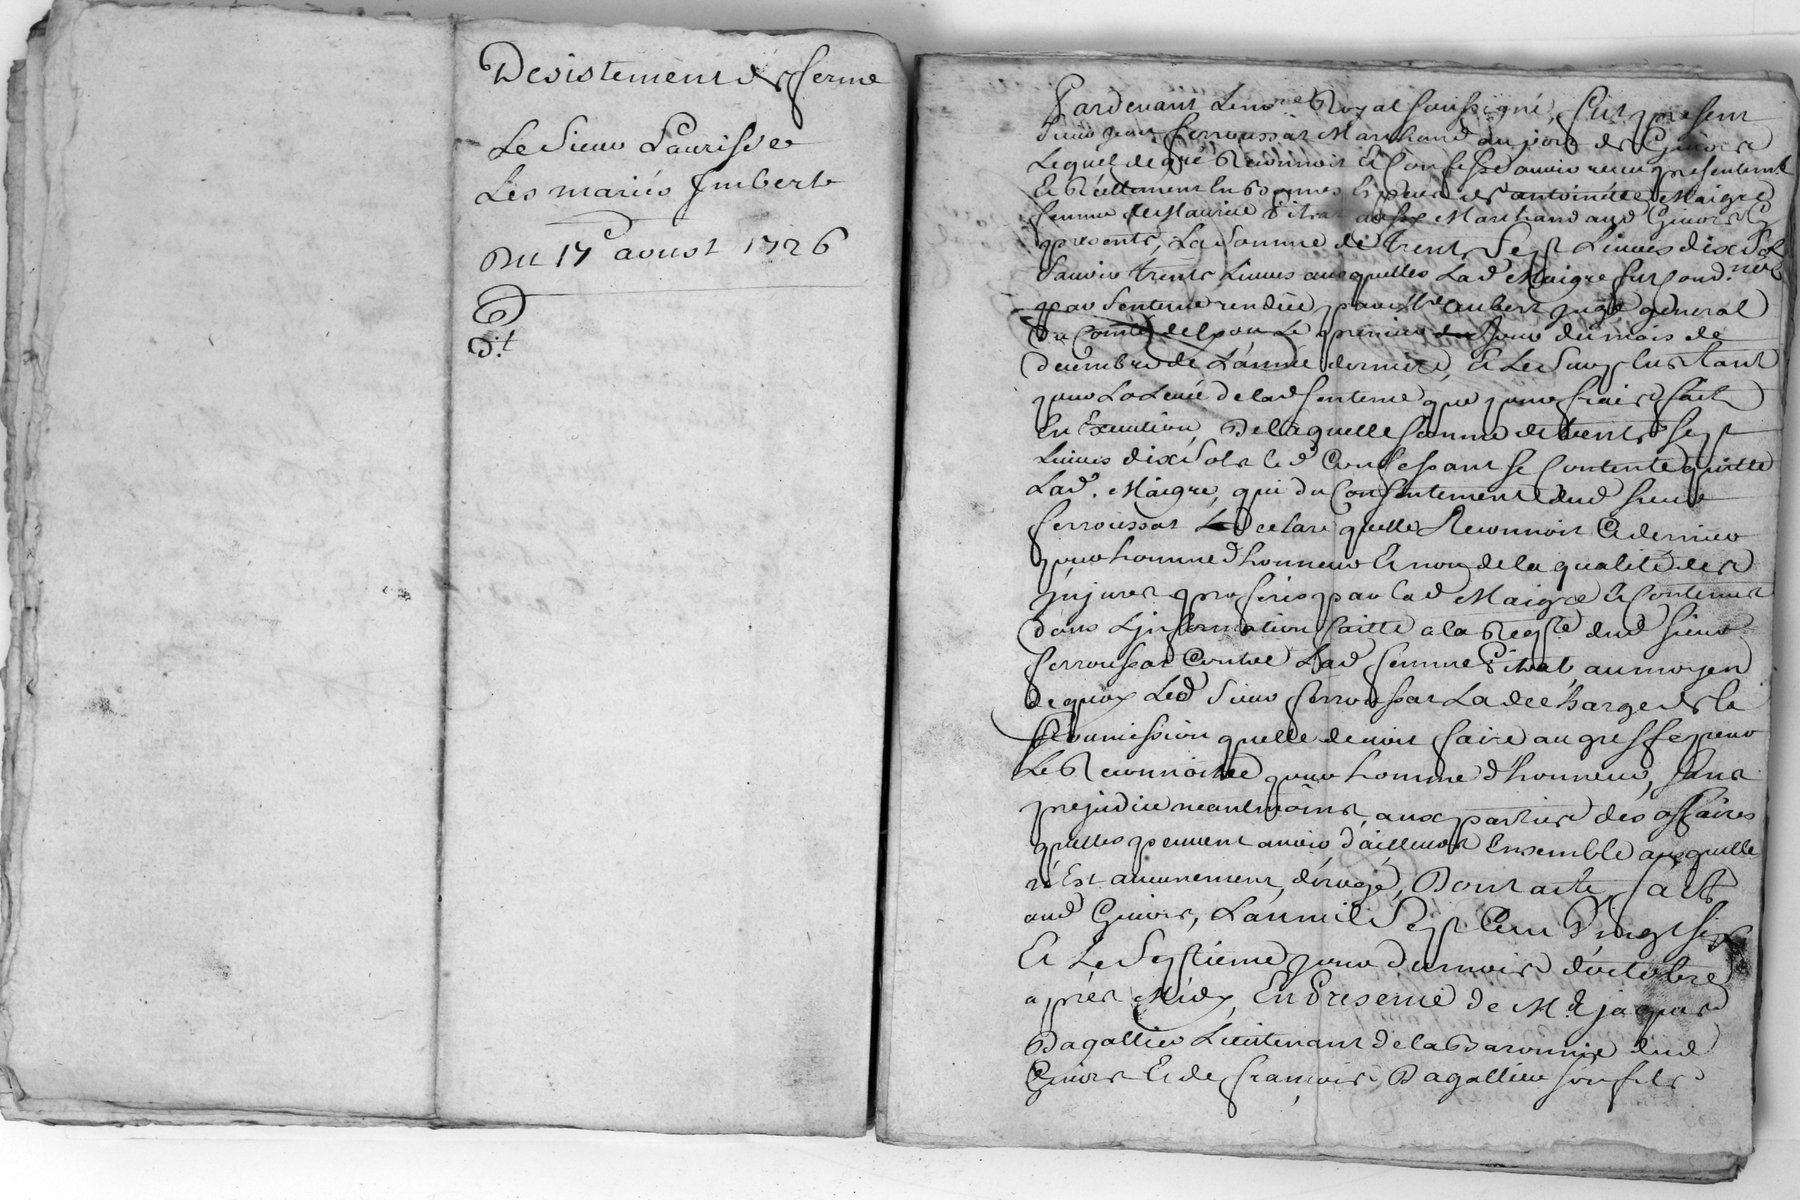 Desistement de ferme
Le Sieur Laurisse
Les mariés Imbert
Du 17e aoust 1726
d.t
Pardevant Le no.re Royal soussigné, fut present
Sieur jean ferroussat Marchand du port de Givors
Lequel de gré Reconnoit Et Confesse avoir reçeu presentement
Et Réellement En Bonnes Especes de antoinette Maigre
femme de Maurice Pitrat aussy Marchand aud Givors
presente, La somme de trente Sept Livres dix sols
Sauoir trente Liures ausquelles Lad Maigre fut cond.née
par Sentence rendüe par Mre aubert juge general
du Comté de Lyon Le premier jour du mois de
decembre de L'année derniere, Et Le Surplus tant
pour La Leuée de lad sentence que pour frais faits
En Execution, De laquelle somme de trente sept
Liures dix Sols led Confessant se Contente quitte
Lad. Maigre, qui du Consentement dud sieur
ferroussat declare quelle Reconnoit Ce dernier
pour homme d'honneur Et non de la qualité des
jnjures proferées par lad Maigre Et Contenues
dans L'jnformation faitte a la Reqte dud sieur
ferroussat Contre Lad femme Pitrat, au moyen
de quoy Led Sieur ferroussat La decharge de la
soumission quelle devoit faire au greffe pour
Le Reconnoitre pour homme d'honneur, sans
prejudice neantmoins, aux parties des affaires
quelles peuuent auoir d'ailleurs Ensemble ausquelle
n'Est aucunement, dérogé, Dont acte, fait
aud Givors, L'an mil Sept Cent Vingt six
Et Le Septieme jour du mois d'octobre
après Midy, En Presence de M.e jaques
Dagallier Lieutenant de la Baronnie dud
Givors Et de francois Dagallier son fils